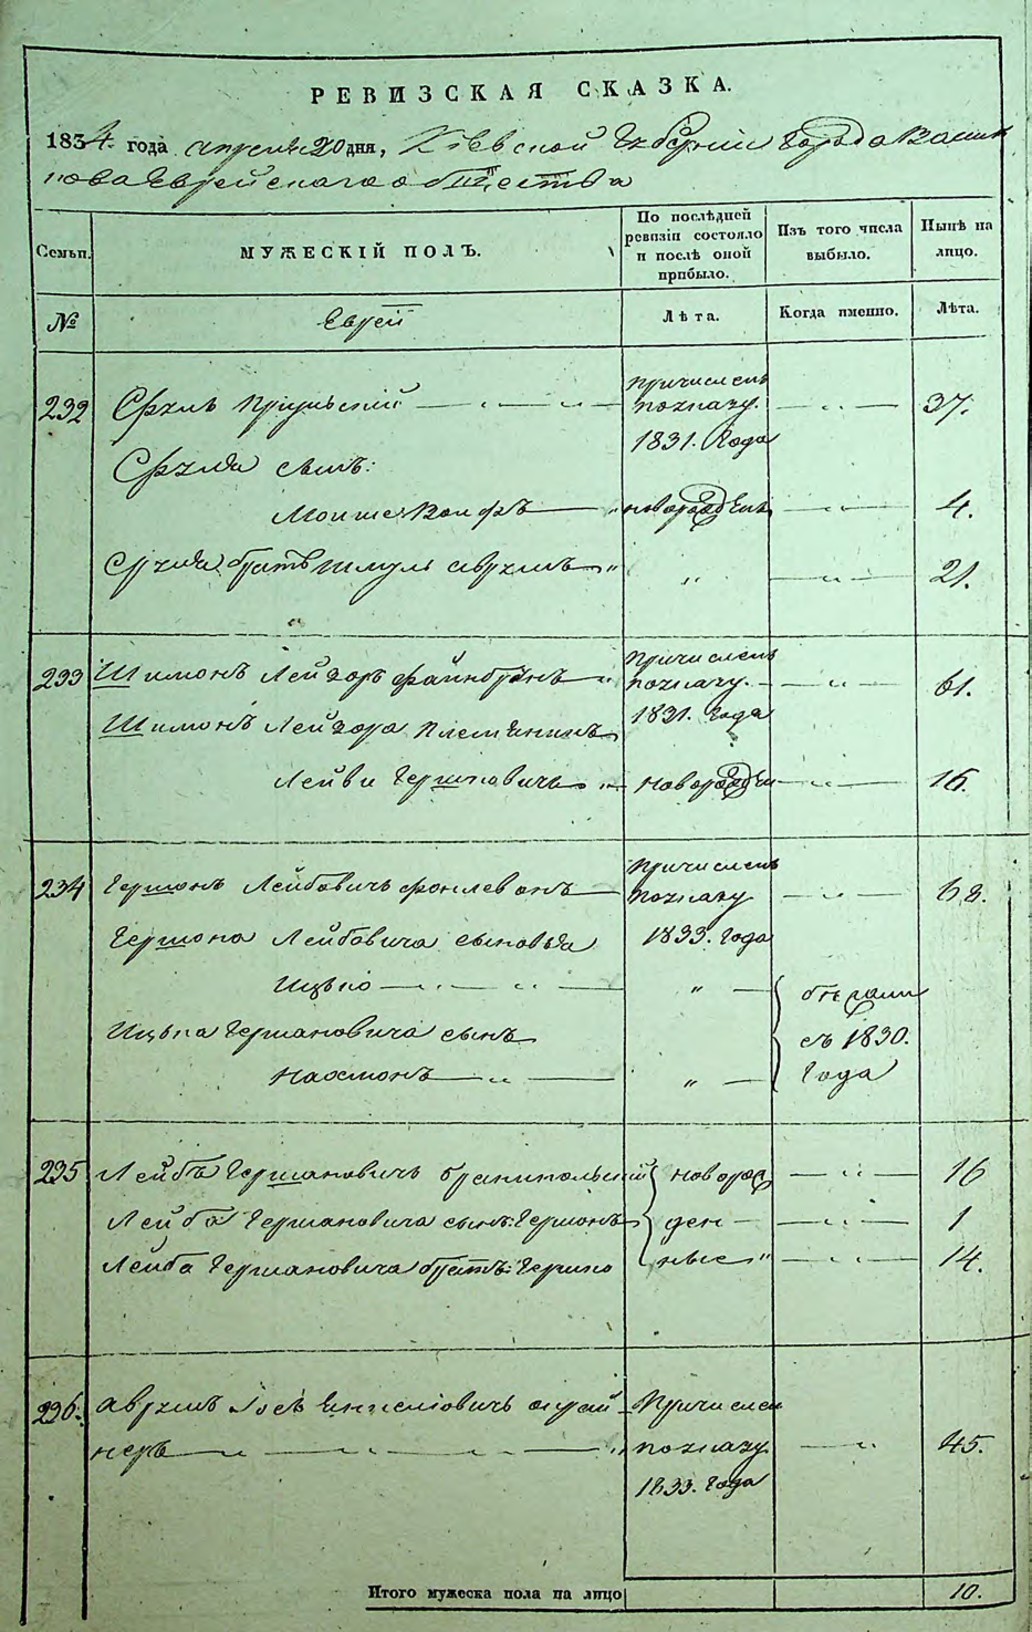 РЕВИЗСКАЯ СКАЗКА.
1834. года апреля 20 дня, Кіевской Губерніи города Василь
кова Еврейскаго общества
Семьи. МУЖЕСКІЙ ПОЛЪ. По послѣдней ревизіи состояло и послѣ оной прибыло. Изъ того числа выбыло. Нынѣ на лицо.
№ Еврей Лѣта. Когда именно. Лѣта.
232 Сруль Причисленъ поуказу 1831. года 37.
Сруля сынъ:
Мошко Вольфъ новорожденъ 4.
Сруля братъ Шмуль Аврумъ " 21.
233 Шимонъ Лейзоръ Файнбрунъ Причисленъ поуказу 1831. года 61.
Шимонъ Лейзора племянникъ
Лейби Гершковичъ Новорожден 16.
234 Гершонъ Лейбовичъ Причисленъ поуказу 1833. года 68.
Гершона Лейбовича сыновья
Ицько " бѣгами
Ицька Гершоновича сынъ съ 1830.
Нахманъ " Года
235 Лейба Гершановичъ новорож 16
Лейба Гершановича сынъ: Гершонъ ден 1
Лейба Гершановича братъ: Гершко ные 14.
236. Аврумъ Іосъ Причислен
неръ поуказу 45.
1833. года
Итого мужеска пола на лицо 10.